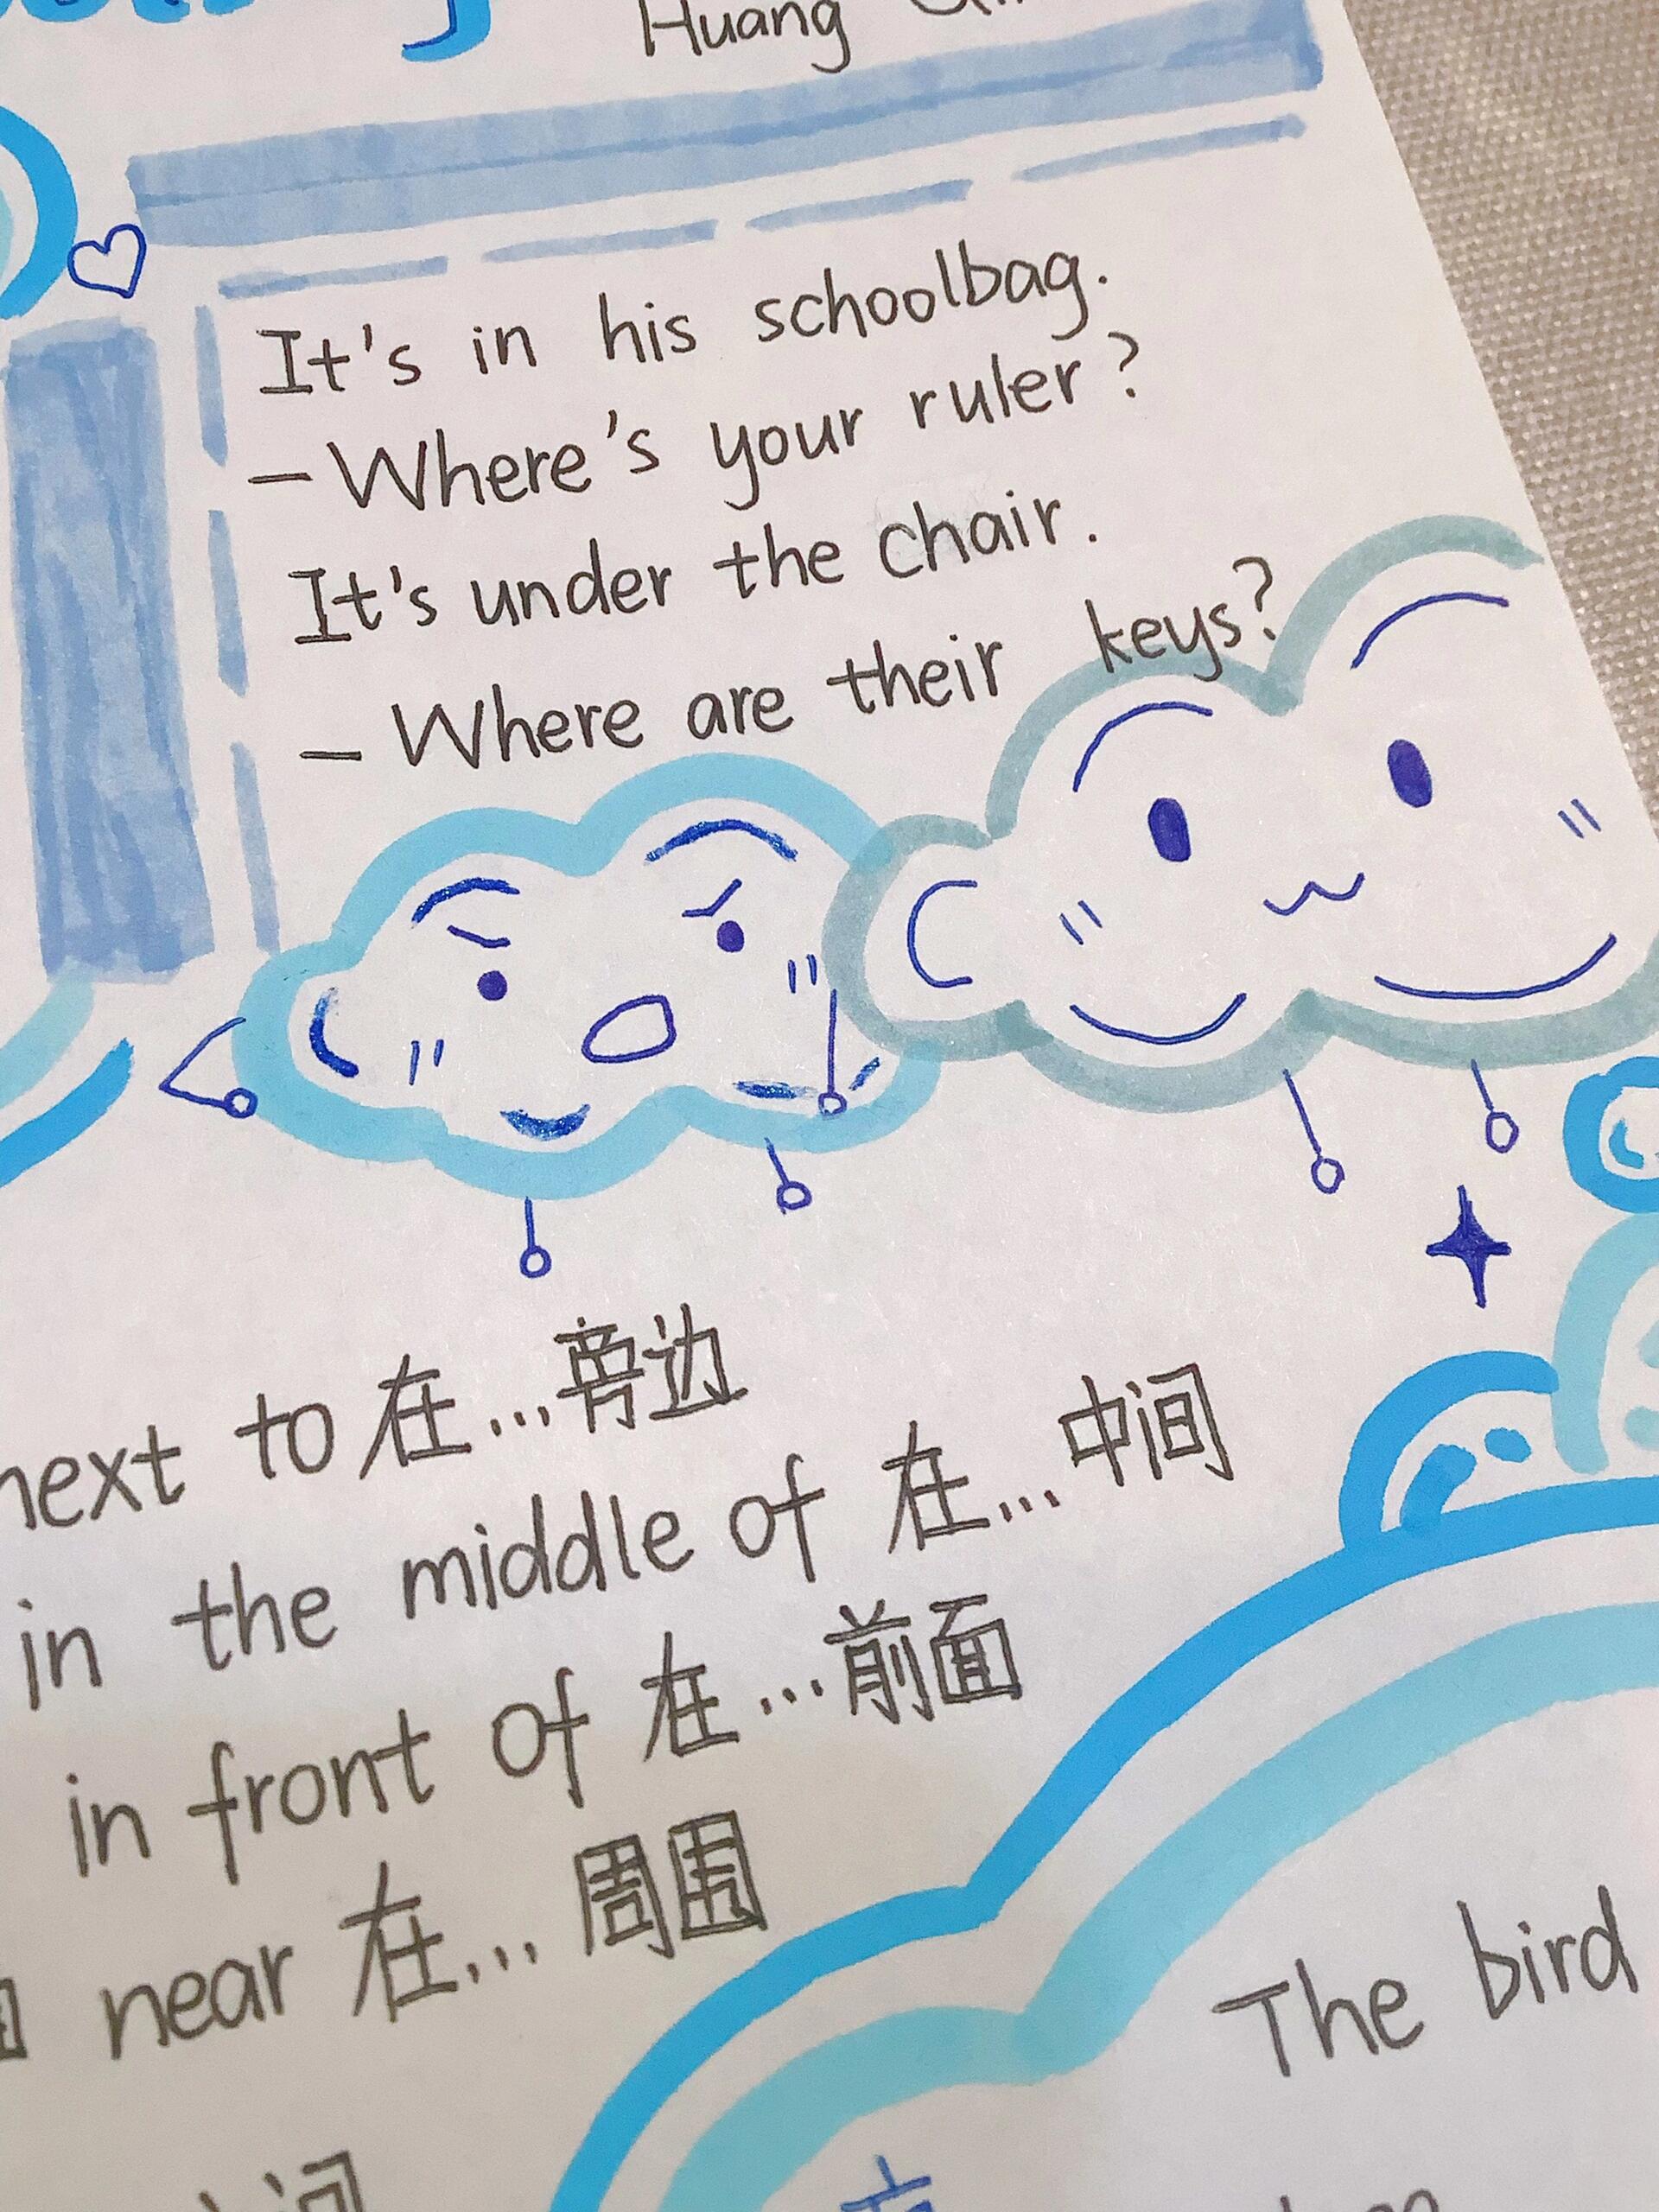 Huang
It's in his schoolbag.
– Where's your ruler?
It's under the chair.
– Where are their keys?
next to 在...旁边
in the middle of 在...中间
in front of 在...前面
near 在...周围
The bird
间